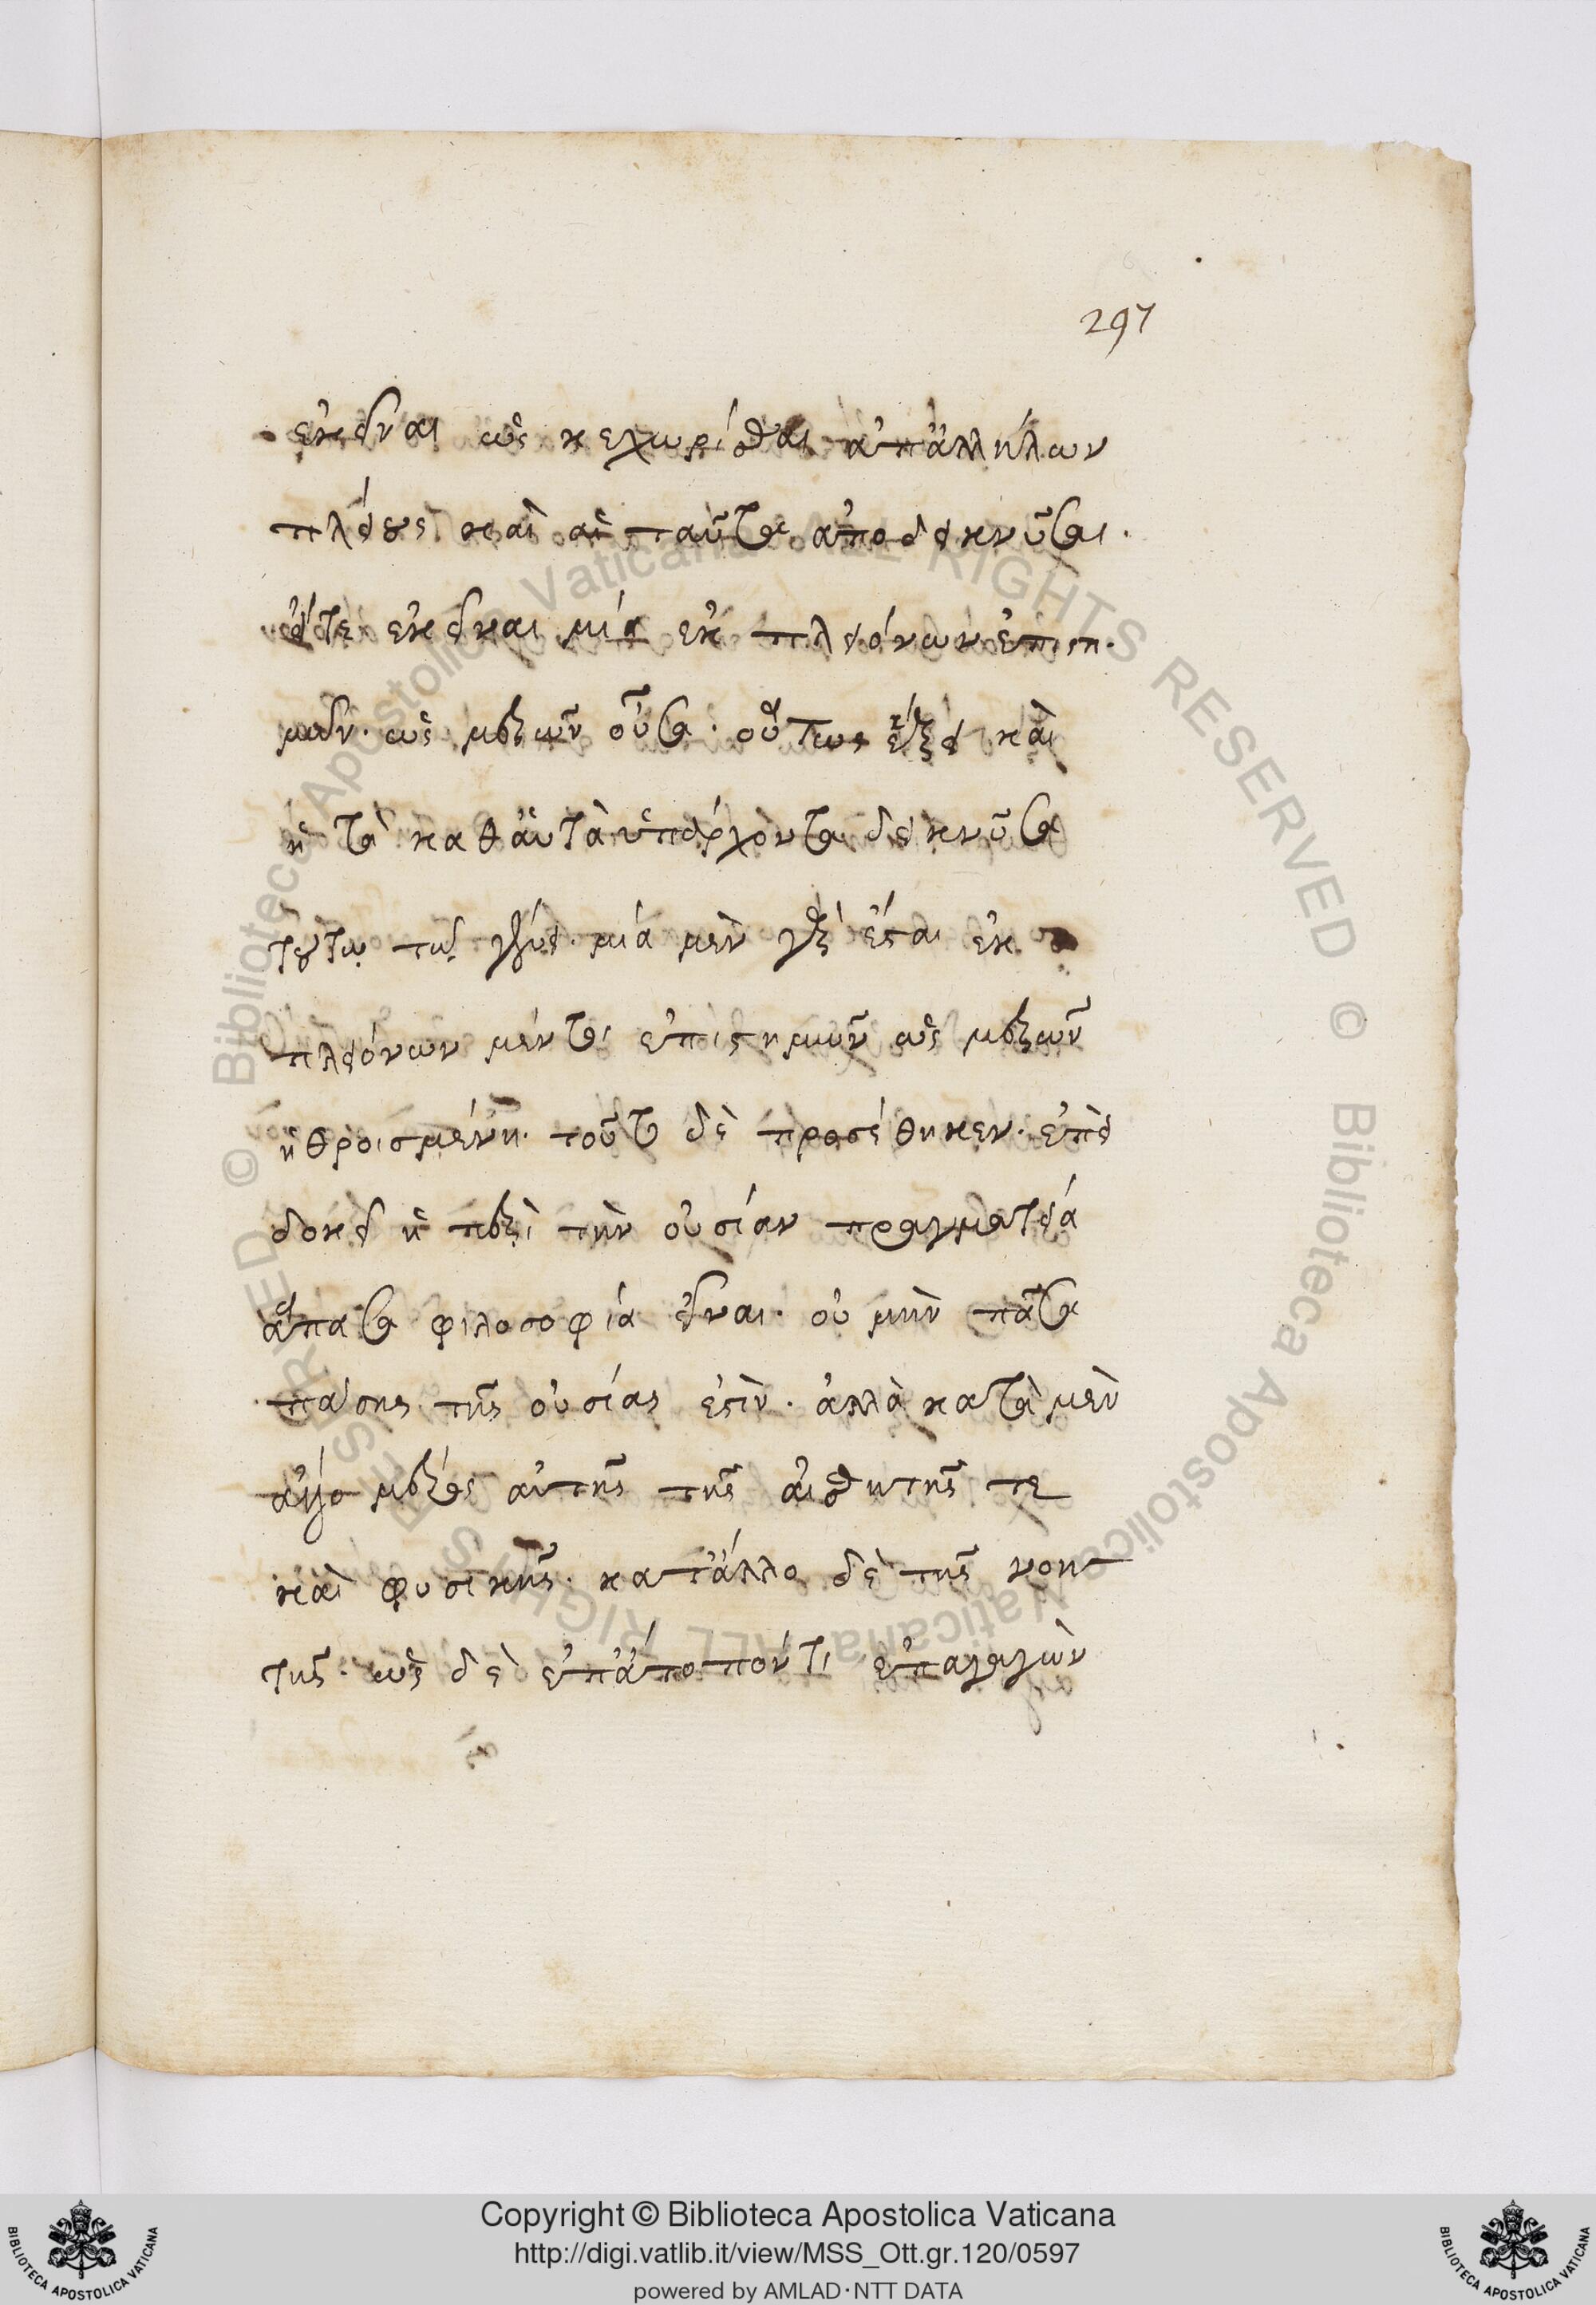 297
ἐκεῖναι ὡς κεχωρίσθαι ἀπἀλλήλων
πλείους καὶ αἱ ταῦτα ἀποδεικνῦσαι.
εἴτε ἐκεῖναι μία ἐκ πλειόνων ἐπιστη.
μῶν. ὡς μερῶν οὖσα. οὕτως ἕξει καὶ
ἡ τὰ καθἁυτὰ ὑπάρχοντα δεικνῦσα
τούτω τῷ γένει. μία μὲν γὰρ ἔσται ἐκ
πλειόνων μέντοι ἐπιστημῶν ὡς μερῶν
ἠθροισμένη. τοῦτο δὲ προσέθηκεν. ἐπεὶ
δοκεῖ ἡ περὶ τὴν οὐσίαν πραγματεία
ἅπασα φιλοσοφία εἶναι. οὐ μὴν πᾶσα
πάσης τῆς οὐσίας ἐστὶν. ἀλλὰ κατὰ μὲν
ἄλλο μέρος αὐτῆς τῆς αἰσθητῆς τε
καὶ φυσικῆς. κατἄλλο δὲ τῆς νοη
τῆς. ὡς δὲ ἐπἄτοπόν τι ἐπαγαγὼν
Copyright © Biblioteca Apostolica Vaticana
http://digi.vatlib.it/view/MSS_Ott.gr.120/0597
powered by AMLAD·NTT DATA
© Biblioteca Apostolica Vaticana ALL RIGHTS RESERVED
© Biblioteca Apostolica Vaticana ALL RIGHTS RESERVED
BIBLIOTECA APOSTOLICA VATICANA
BIBLIOTECA APOSTOLICA VATICANA